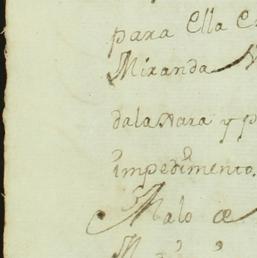 para Ella
Miranda
dalaxara y p
impedimento.
Malo